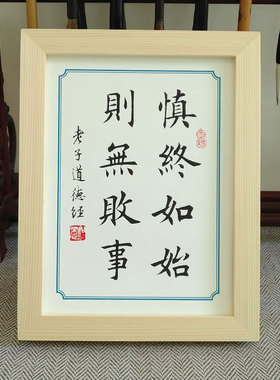 慎終如始
則無敗事
老子道德經